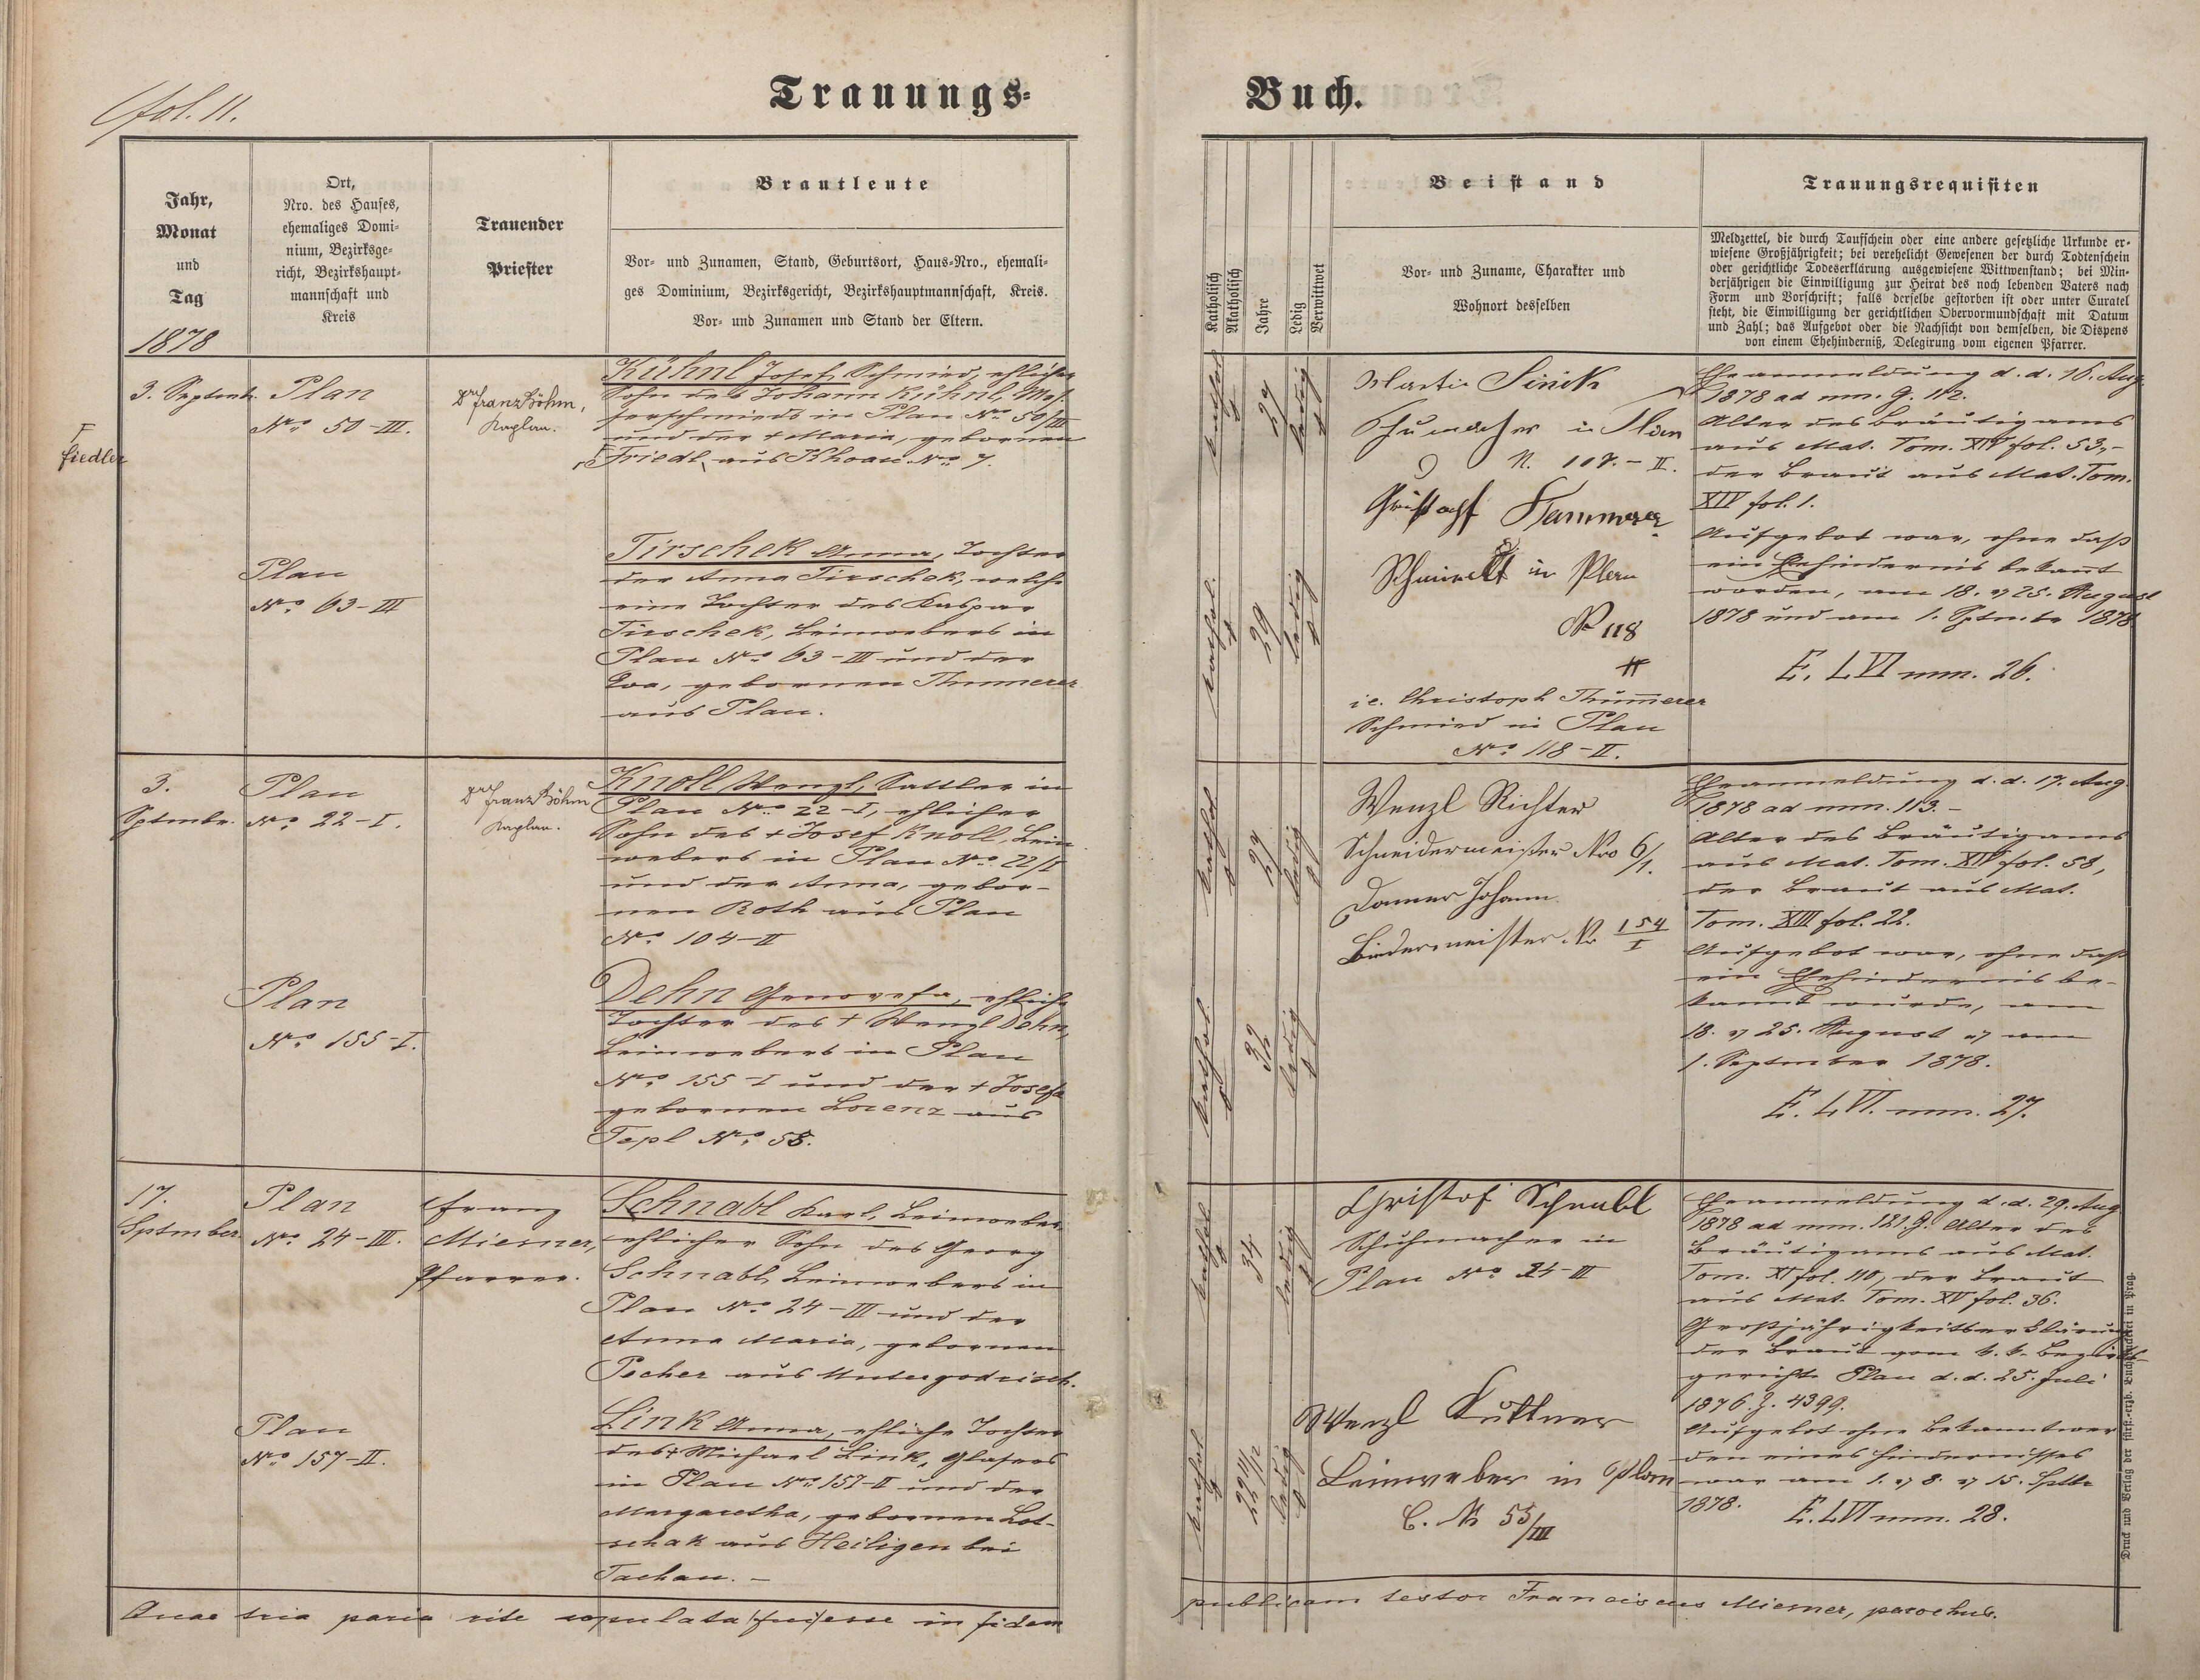 fol. 11.
Trauungs-
Jahr,
Monat
und
Tag
1878
Ort,
Nro. des Hauses,
ehemaliges Domi-
nium, Bezirksge-
richt, Bezirkshaupt-
mannschaft und
Kreis
Trauender
Priester
Brautleute
Vor- und Zunamen, Stand, Geburtsort, Haus-Nro., ehemali-
ges Dominium, Bezirksgericht, Bezirkshauptmannschaft, Kreis.
Vor- und Zunamen und Stand der Eltern.
3. Septemb.
Plan
Nro 50-III.
Dr Franz Böhm,
Kaplan.
Kühnl Josef, Schmied, ehlicher
Sohn des Johann Kühnl, Mes-
serschmieds in Plan Nro 50/III
und der + Maria, gebornen
Friedl, aus Khoau Nro 7.
Fiedler
Plan
Nro 63-III
Tirschek Anna, Tochter
der Anna Tirschek, welche
eine Tochter des Kaspar
Tirschek, Leinwebers in
Plan Nro 63-III und der
Eva, gebornen Thummerer
aus Plan.
3.
Sptmbr.
Plan
Nro 22-I.
Dr Franz Böhm
Kaplan.
Knoll Wenzl, Sattler in
Plan Nro 22-I, ehlicher
Sohn des + Josef Knoll, Lein
webers in Plan Nro 22/I
und der Anna, gebor-
nen Roth aus Plan
Nro 104-II
Plan
Nro 155-I.
Dehn Genovefa, ehliche
Tochter des + Wenzl Dehn,
Leinwebers in Plan
Nro 155-I und der + Josefa
gebornen Lorenz aus
Tepl Nro 58.
17.
Sptmber.
Plan
Nro 24-III.
Franz
Miesner,
Pfarrer.
Schnabl Karl, Leinweber
ehlicher Sohn des Georg
Schnabl, Leinwebers in
Plan Nro 24-III und der
Anna Maria, gebornen
Pecher aus Untergodrisch.
Plan
Nro 157-II.
Link Anna, ehliche Tochter
des + Michael Link, Glasers
in Plan Nro 157-II und der
Margaretha, gebornen Lot-
schak aus Heiligen bei
Tachau.-
Quae tria paria rite copulata fuisse in fidem
Buch.
Katholisch
Akatholisch
Jahre
Ledig
Verwittwet
Beistand
Vor- und Zuname, Charakter und
Wohnort desselben
Trauungsrequisiten
Meldzettel, die durch Taufschein oder eine andere gesetzliche Urkunde er-
wiesene Großjährigkeit; bei verehelicht Gewesenen der durch Todtenschein
oder gerichtliche Todeserklärung ausgewiesene Wittwenstand; bei Min-
derjährigen die Einwilligung zur Heirat des noch lebenden Vaters nach
Form und Vorschrift; falls derselbe gestorben ist oder unter Curatel
steht, die Einwilligung der gerichtlichen Obervormundschaft mit Datum
und Zahl; das Aufgebot oder die Nachsicht von demselben, die Dispens
von einem Ehehinderniß, Delegirung vom eigenen Pfarrer.
kathol.
27
ledig
Martin
Schumacher in Plan
N. 107.-II.
kathol.
29
ledig
Schmiedt in Plan
No 118
II
i.e. Christoph Thümmerer
Schmied in Plan
Nro 118-II.
Eheanmeldung d. d. 16. Aug.
1878 ad nrm. G. 112.
Alter des Bräutigams
aus Mat. Tom. XIV fol. 53,-
der Braut aus Mat. Tom.
XIV fol. 1.
Aufgebot war, ohne daß
ein Ehehindernis bekannt
worden, am 18. & 25. August
1878 und am 1. Sptmbr 1878
E. LVI nrm. 26.
kathol.
27
ledig
kathol.
32
ledig
Wenzl Richter
Schneidermeister Nro 6/1.
Damer Johann
Bindermeister Nr 154/I
Eheanmeldung d. d. 17. Aug.
1878 ad nrm. 113.-
Alter des Bräutigams
aus Mat. Tom. XIV fol. 58,
der Braut aus Mat.
Tom. XIII fol. 22.
Aufgebot war, ohne daß
ein Ehehindernis be-
kannt wurde, am
18. & 25. August & am
1. September 1878.
E. LVI. nrm. 27.
kathol
34
ledig
Christof Schnabl
Schuhmacher in
Plan Nro 24-III
kathol.
22 11/12
ledig
Wenzl Kuttner
Leinweber in Plan
C. N 55/III
Eheanmeldung d. d. 29. Aug
1878 ad nrm. 121. G. Alter des
Bräutigams aus Mat.
Tom. XI fol. 110, der Braut
aus Mat. Tom. XV fol. 36.
Großjährigkeitserklärung
der Braut vom k. k. Bezirks
gerichte Plan d. d. 25. Juli
1876. Z. 4399.
Aufgebot ohne Bekanntwer
den eines Hindernisses
war am 1. & 8. & 15. Sptbr
1878.
E. LVI nrm. 28.
publicam testor Franciscus Miesner, parochus.
Druck und Verlag der fürst.-erzb. Buchdruckerei in Prag.